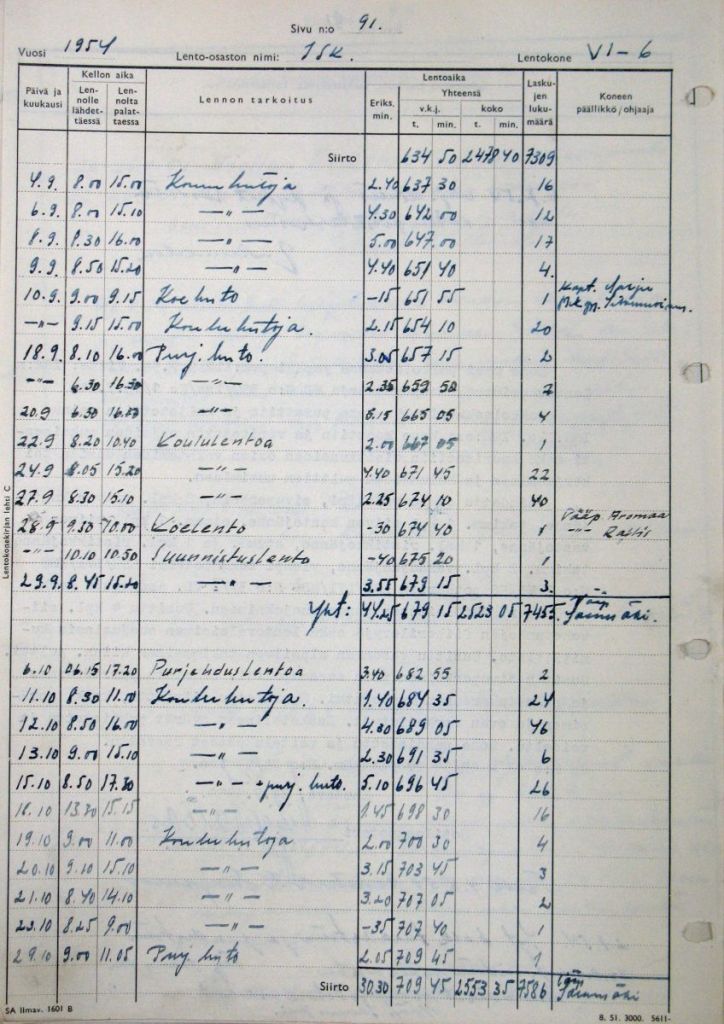 Sivu n:o 91.
Vuosi 1954 Lento-osaston nimi: ISK. Lentokone VI-6
Päivä ja kuukausi Kellon aika Lennolle lähdettäessä Lennolta palattaessa Lennon tarkoitus Lentoaika Eriks. min. Yhteensä v.k.j. t. min. koko t. min. Laskujen lukumäärä Koneen päällikkö/ohjaaja
Siirto 634 50 2478 40 7309
4.9. 8.00 15.00 Koulu lentoja 2.40 637 30 16
6.9. 8.00 15.10 —"— 4.30 642 00 12
8.9. 8.30 16.00 —"— 5.00 647.00 17
9.9. 8.50 15.20 —"— 4.40 651 40 4.
10.9. 9.00 9.15 Koe lento -15 651 55 1 Kapt.
—"— 9.15 15.00 Koulu lentoja. 2.15 654 10 20
18.9. 8.10 16.00 Purj. lento. 3.05 657 15 2
—"— 6.30 16.30 —"— 2.35 659 50 7
20.9 6.30 —"— 5.15 665 05 4
22.9 8.20 10.40 Koululentoa 2.00 667 05 1
24.9 8.05 15.20 —"— 4.40 671 45 22
27.9 8.30 15.10 —"— 2.25 674 10 40
28.9 9.30 10.00 Koelento -30 674 40 1 Vääp Aromaa
—"— 10.10 10.50 Suunnistuslento -40 675 20 1 —"— Rallis
29.9. 8.45 15.20 —"— 3.55 679 15 3.
Yht: 44.25 679 15 2523 05 7455.
6.10 06.15 17.20 Purjehduslentoa 3.40 682 55 2
11.10 8.30 11.00 Koulu lentoja. 1.40 684 35 24
12.10 8.50 16.00 —"— 4.30 689 05 46
13.10 9.00 15.10 —"— 2.30 691 35 6
15.10 8.50 17.30 —"— + purj. lento. 5.10 696 45 26
18.10 13.30 15.15 —"— 1.45 698 30 16
19.10 9.00 11.00 Koulu lentoja 2.00 700 30 4
20.10 9.10 15.10 —"— 3.15 703 45 3
21.10 8.40 14.10 —"— 3.20 707 05 2
23.10 8.25 9.00 —"— -35 707 40 1
29.10 9.00 11.05 Purj. lento 2.05 709 45 1
Siirto 30.30 709 45 2553 35 7586
Lentokonekirjan lehti C
SA Ilmav. 1601 B 8. 51. 3000. 5611-